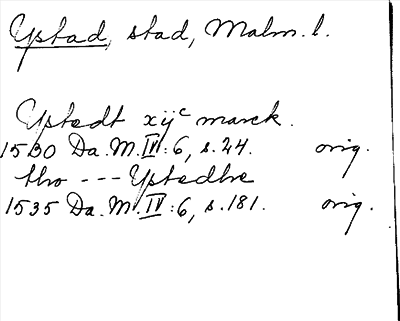 Ystad, stad, Malm. l.
Ystedt xijc marck.
1530 Da. M. IV: 6, s. 24. orig.
tho --- Ystedhe
1535 Da. M. IV: 6, s. 181. orig.